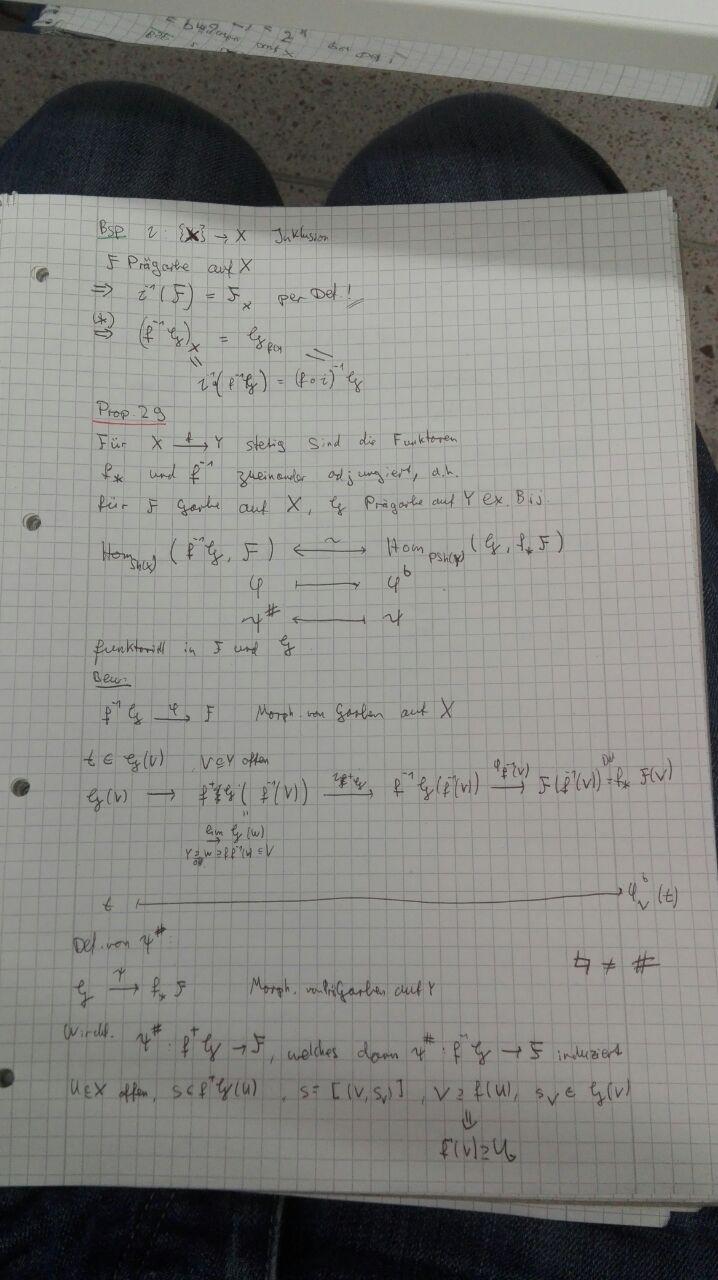 = 2ⁿ
Bsp i: {x} → X Inklusion
F Prägarbe auf X
⇒ i⁻¹(F) = F_x per Def.!
(*) ⇒ (f⁻¹G)_x = G_f(x)
i⁻¹(f⁻¹G) = (f∘i)⁻¹G
Prop. 29
Für X →f Y stetig sind die Funktoren
f_* und f⁻¹ zueinander adjungiert, d.h.
für F Garbe auf X, G Prägarbe auf Y ex. Bij.
Hom_Sh(X) (f⁻¹G, F) ←~→ Hom_PSh(Y) (G, f_*F)
φ ↦ φ^b
ψ^# ↤ ψ
funktoriell in F und G
Bew.
f⁻¹G →φ F Morph. von Garben auf X
t ∈ G(V) V⊆Y offen
G(V) → f⁺G(f⁻¹(V)) → f⁻¹G(f⁻¹(V)) →φ_f⁻¹(V) F(f⁻¹(V)) =Def f_*F(V)
lim→ G(W)
t ↦ φ^b_V(t)
Def. von ψ^#:
♮ ≠ #
G →ψ f_*F Morph. von Prägarben auf Y
ψ^#: f⁺G → F, welches dann ψ^#: f⁻¹G → F induziert
U⊆X offen, s∈f⁺G(U), s=[(V,s_V)], V ⊇ f(U), s_V ∈ G(V)
⇓
f⁻¹(V)⊇U